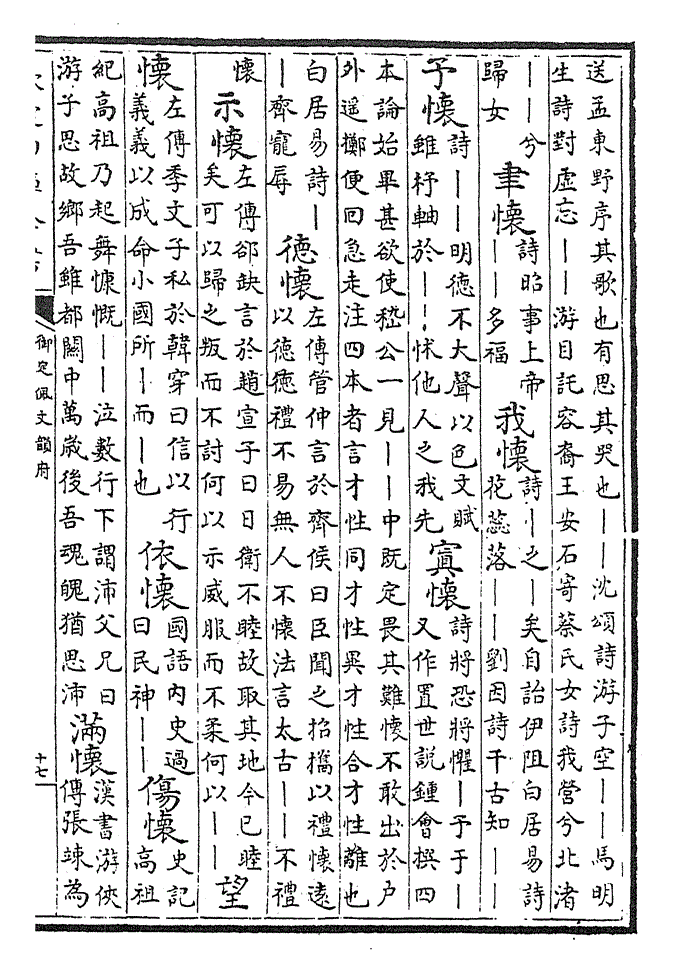 送孟東野序其歌也有思其哭也——沈頌詩游子空——馬明
生詩對虛忘——游目託容裔王安石寄蔡氏女詩我營兮北渚
——兮
歸女
聿懷
詩昭事上帝
——多福
我懷
詩—之—矣自詒伊阻白居易詩
花蕊落——劉因詩千古知——
予懷
詩——明德不大聲以色文賦
雖杼軸於——怵他人之我先
寘懷
詩將恐將懼—予于—
又作置世說鍾會撰四
本論始畢甚欲使嵇公一見——中既定畏其難懷不敢出於戶
外遥擲便回急走注四本者言才性同才性異才性合才性離也
白居易詩—
—齊寵辱
德懷
左傳管仲言於齊侯曰臣聞之招攜以禮懷遠
以德德禮不易無人不懷法言太古——不禮
懷
示懷
左傳郤缺言於趙宣子曰日衛不睦故取其地今已睦
矣可以歸之叛而不討何以示威服而不柔何以——
望
懷
左傳季文子私於韓穿曰信以行
義義以成命小國所—而—也
依懷
國語內史過
曰民神——
傷懷
史記
高祖
紀高祖乃起舞慷慨——泣數行下謂沛父兄曰
游子思故鄉吾雖都關中萬歲後吾魂魄猶思沛
滿懷
漢書游俠
傳張竦為
御定佩文韻府
十七